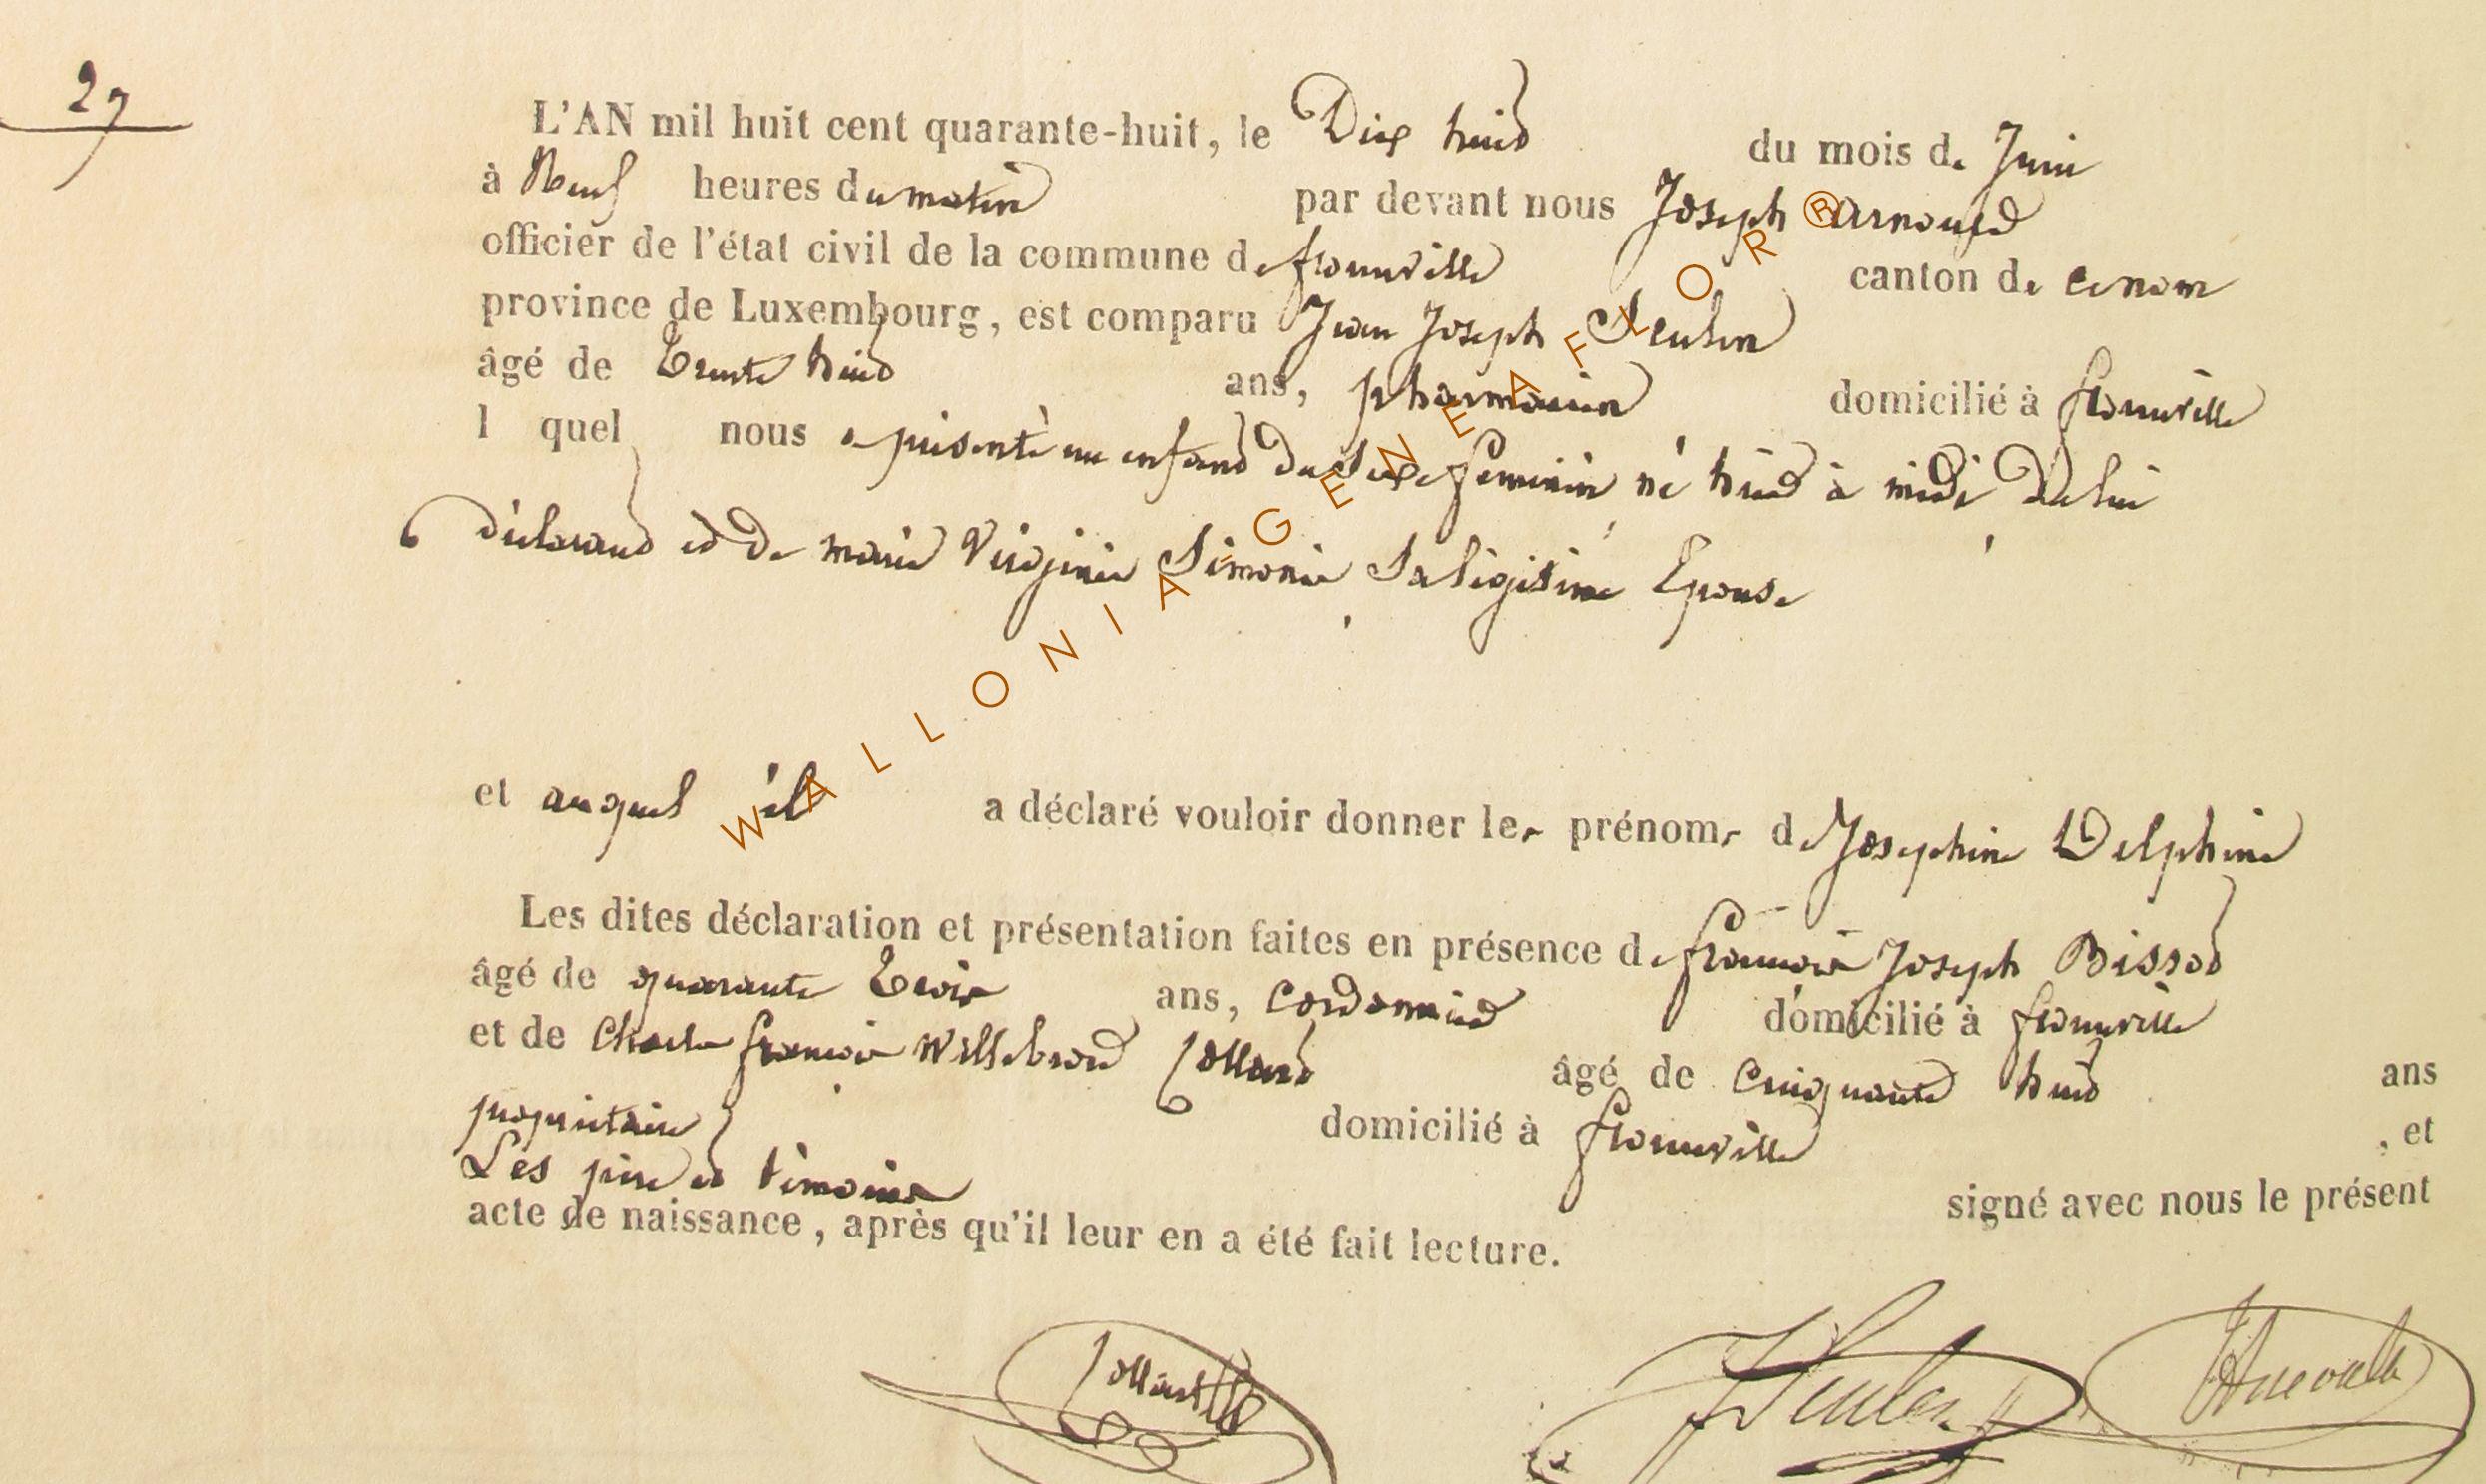 27
L'AN mil huit cent quarante-huit, le Dix huit du mois de Juin
à Neuf heures du matin par devant nous Joseph Arnould
officier de l'état civil de la commune de florenville canton de
province de Luxembourg, est comparu Jean Joseph
âgé de Trente huit ans, pharmacien domicilié à florenville
l quel nous a présenté un enfant du Sexe feminin né huit à midi De lui
déclarant et de marie Virginie Simonie Sa légitime Epouse
et auquel il a déclaré vouloir donner les prénoms de Josephine Delphine
Les dites déclaration et présentation faites en présence de francois Joseph Bissot
âgé de quarante Trois ans, Cordonnier domicilié à florenville
et de Charles francois Willebrord Collard âgé de Cinquante huit ans
propriétaire domicilié à florenville , et
Les père et témoins signé avec nous le présent
acte de naissance, après qu'il leur en a été fait lecture.
WALLONIA GENEAFLOR ®
Collard